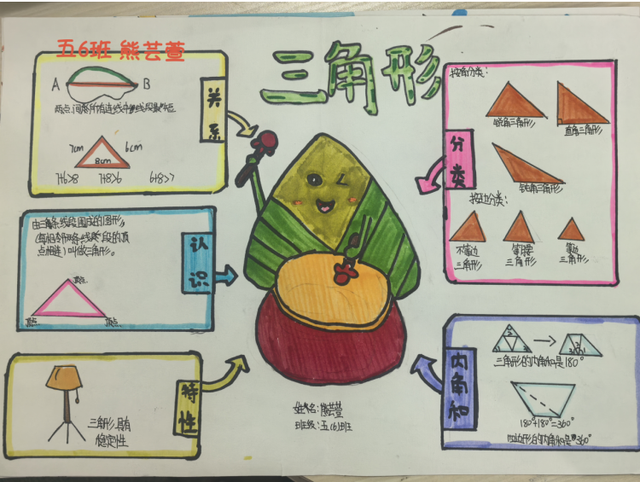 五6班 熊芸萱
三角形
关系
A B
两点间所有连线中线段最短
7cm 6cm
8cm
7+6>8 7+8>6 6+8>7
认识
由三条线段围成的图形
(每相邻两条线段的端
点相连)叫做三角形。
顶点
顶点 顶点
特性
三角形具有
稳定性
姓名:熊芸萱
班级:五(6)班
分类
按角分类:
锐角三角形 直角三角形
钝角三角形
按边分类:
不等边
三角形
等腰
三角形
等边
三角形
内角和
三角形的内角和是180°
180°+180°=360°
四边形的内角和是360°